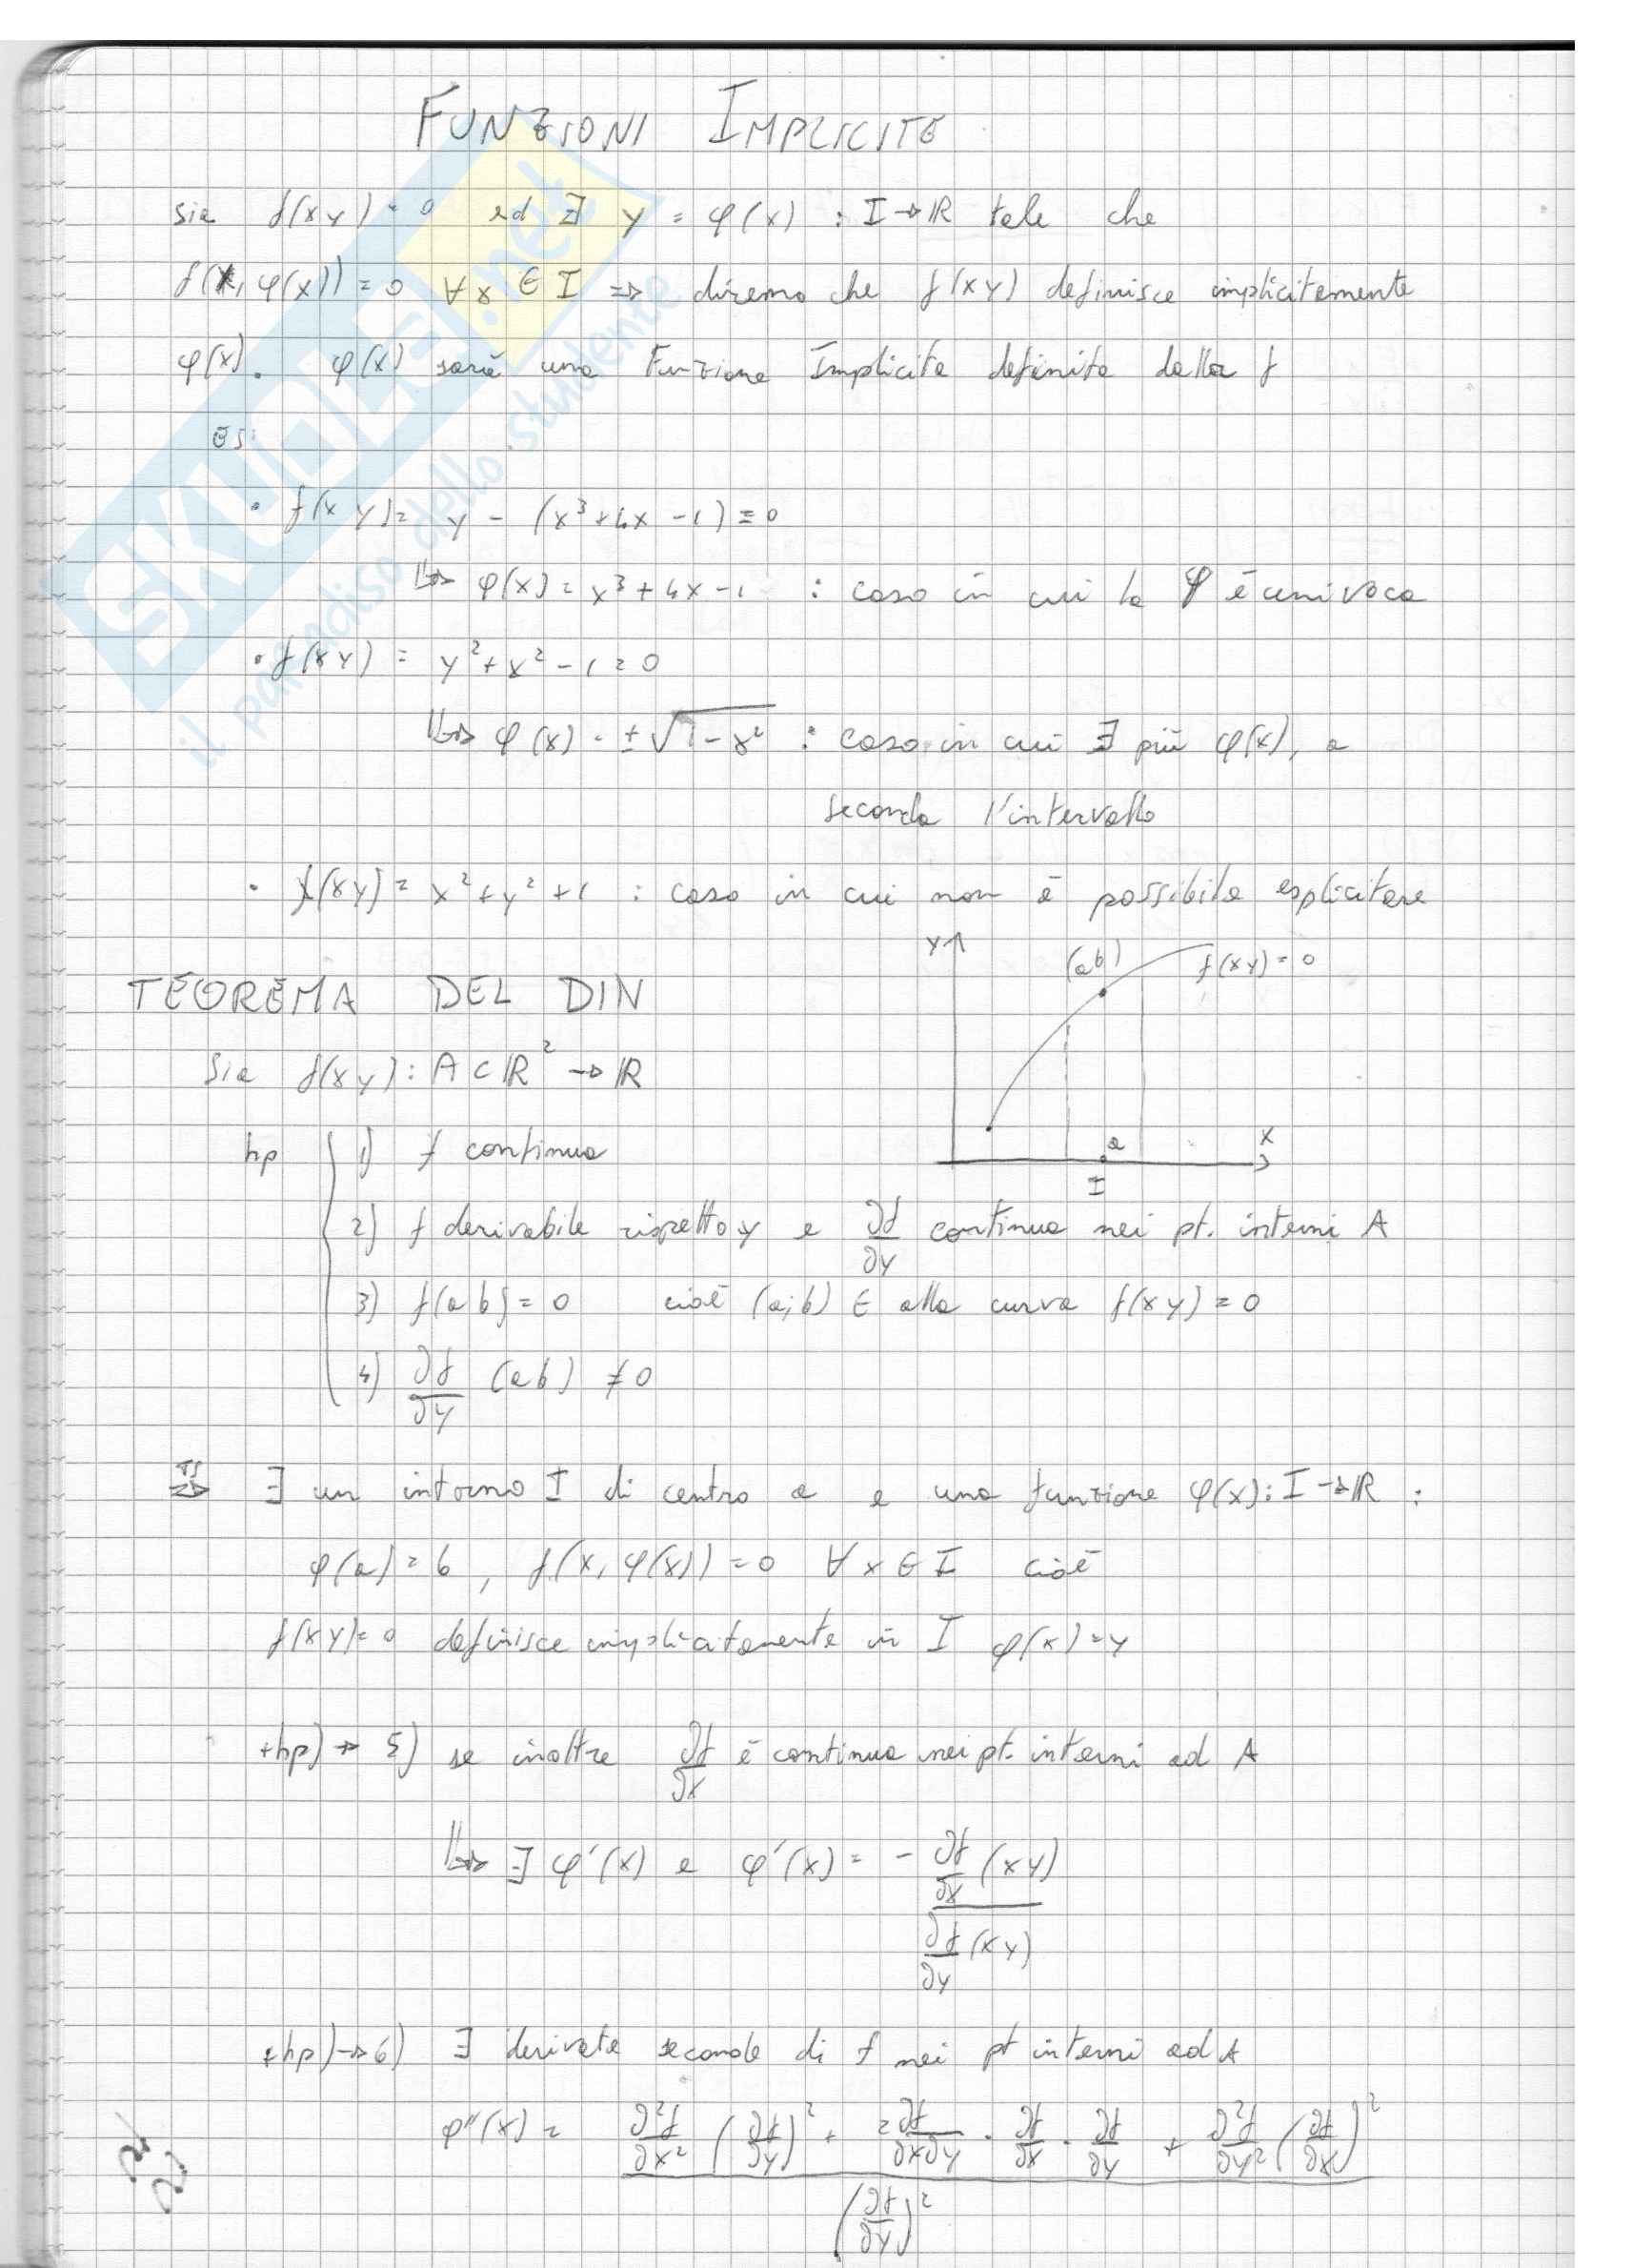 FUNZIONI IMPLICITE
sia f(xy) = 0 ed ∃ y = φ(x) : I → ℝ tale che
f(x, φ(x)) = 0 ∀ x ∈ I ⇒ diremo che f(xy) definisce implicitamente
φ(x). φ(x) sarà una Funzione Implicita definita dalla f
ES:
• f(x y) = y - (x³ + 4x - 1) = 0
⇒ φ(x) = x³ + 4x - 1 : caso in cui la φ è univoca
• f(xy) = y² + x² - 1 = 0
⇒ φ(x) = ±√1 - x² : caso in cui ∃ più φ(x), a
seconda l'intervallo
• f(xy) = x² + y² + 1 : caso in cui non è possibile esplicitare
y
(ab)
f(xy) = 0
a
x
I
TEOREMA DEL DINI
Sia f(xy) : A ⊂ ℝ² → ℝ
hp 1) f continua
2) f derivabile rispetto y e ∂f/∂y continua nei pt. interni A
3) f(ab) = 0 cioè (a;b) ∈ alla curva f(xy) = 0
4) ∂f/∂y (ab) ≠ 0
TS ⇒ ∃ un intorno I di centro a e una funzione φ(x) : I → ℝ :
φ(a) = b , f(x, φ(x)) = 0 ∀ x ∈ I cioè
f(xy) = 0 definisce implicitamente in I φ(x) = y
+hp) → 5) se inoltre ∂f/∂x è continua nei pt. interni ad A
⇒ ∃ φ'(x) e φ'(x) = - ∂f/∂x (xy) / ∂f/∂y (xy)
+hp) → 6) ∃ derivate seconde di f nei pt interni ad A
φ''(x) = ∂²f/∂x² (∂f/∂y)² + 2∂f/∂x∂y · ∂f/∂x · ∂f/∂y + ∂²f/∂y² (∂f/∂x)² / (∂f/∂y)²
SKUOLA.net
il paradiso dello studente